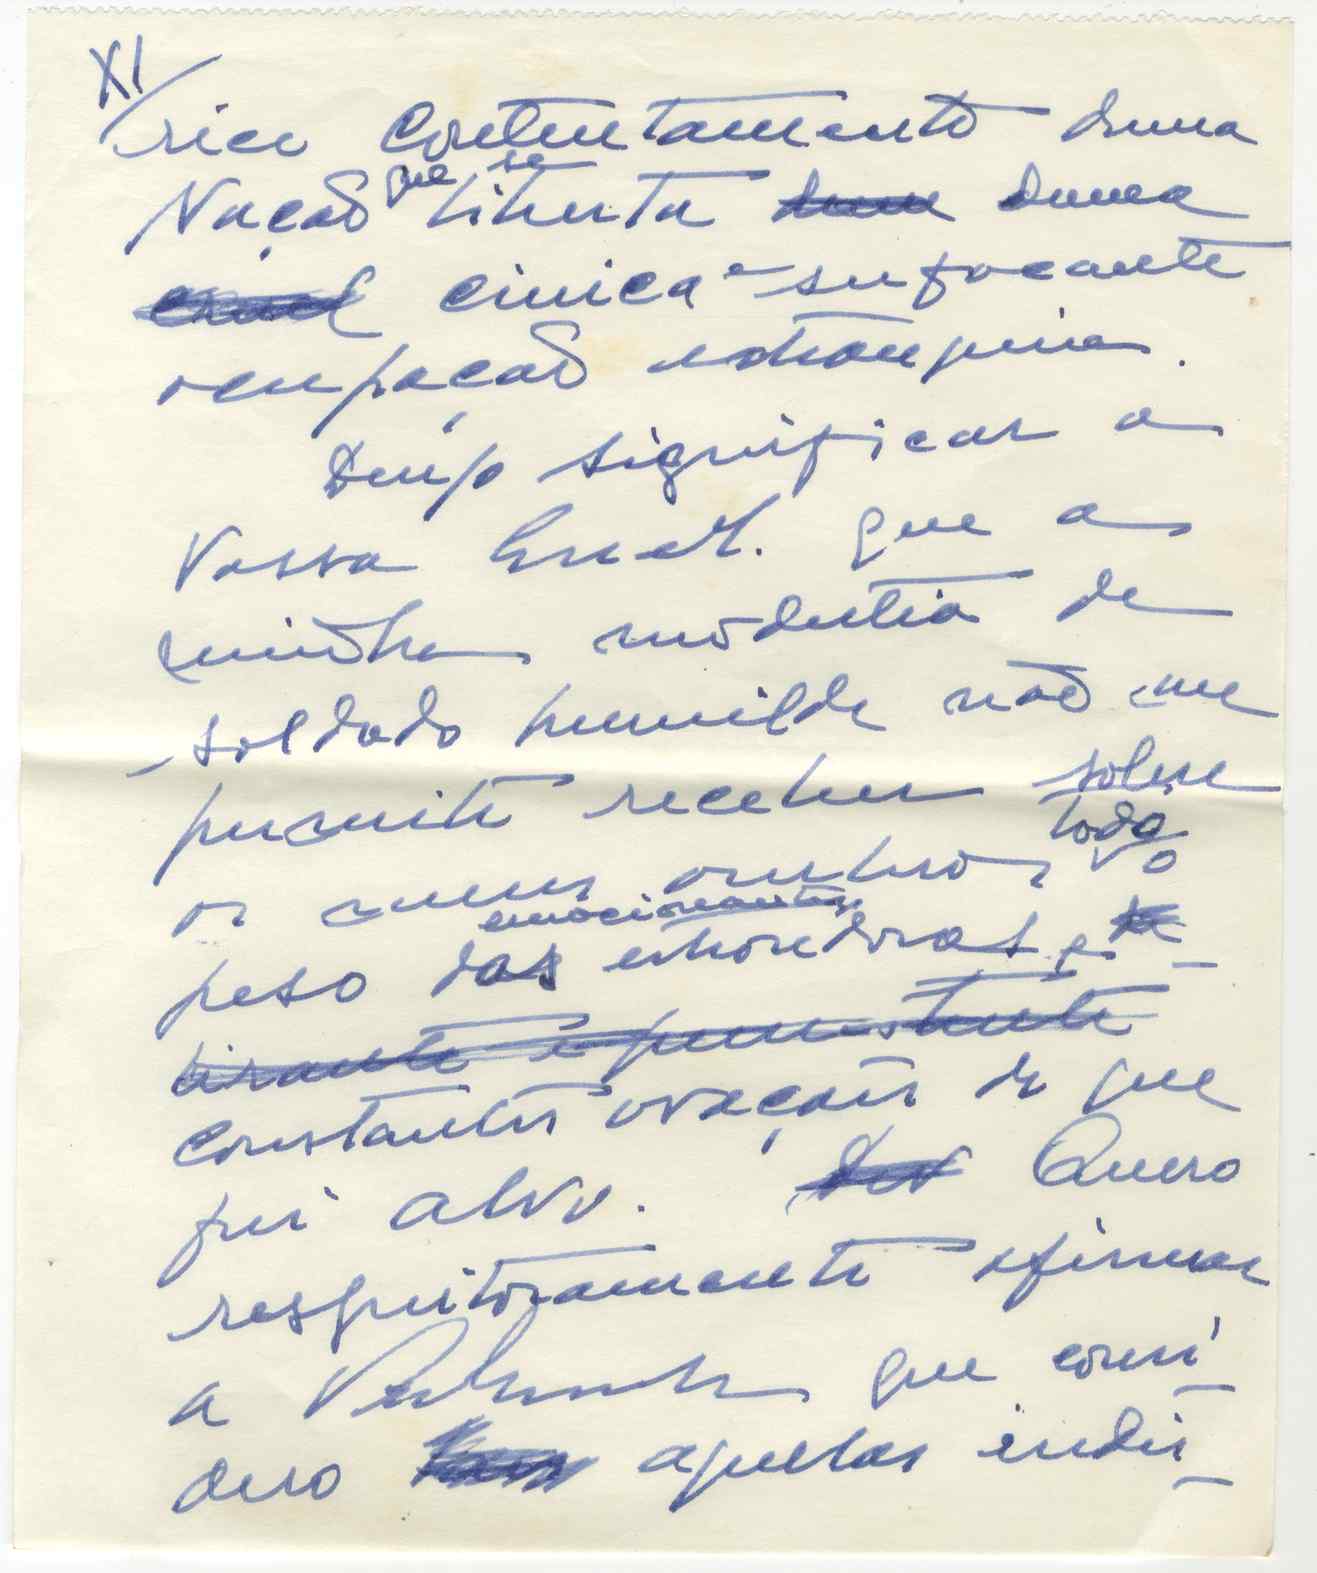 XI
rico contentamento duma
Nação que se liberta duma
cínica e sufocante
ocupação estrangeira.
Desejo significar a
Vossa que a
minha modéstia de
soldado humilde não me
permite receber sobre
os meus ombros todo o
peso das emocionantes estrondosas e
constantes ovações de que
fui alvo. Quero
respeitosamente afirmar
a que consi-
dero aquelas indis-